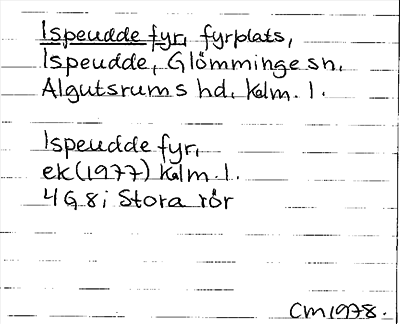 Ispeudde fyr, fyrplats,
Ispeudde, Glömminge sn.
Algutsrums hd. Kalm. l.
Ispeudde fyr,
ek (1977) Kalm. l.
4G8i Stora rör
CM 1978.